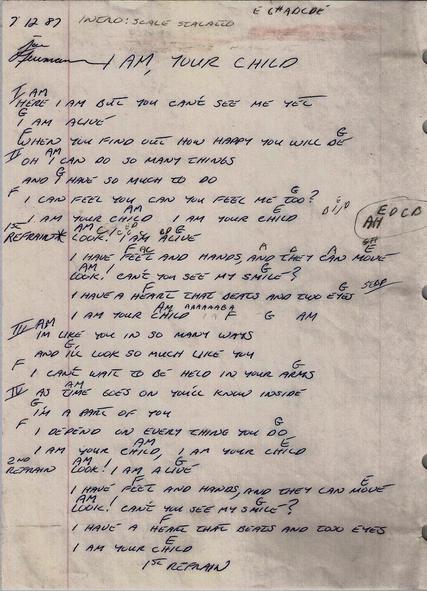 E G# A D C D E
7 12 87 INTRO: SCALE STACCATO
I AM, YOUR CHILD
I AM
HERE I AM BUT YOU CAN'T SEE ME YET
G
I AM ALIVE
F G
WHEN YOU FIND OUT HOW HAPPY YOU WILL BE
II AM
OH I CAN DO SO MANY THINGS
G
AND I HAVE SO MUCH TO DO
F G
I CAN FEEL YOU, CAN YOU FEEL ME TOO?
AM E
I AM YOUR CHILD I AM YOUR CHILD
E D C B
AM
1ST REFRAIN* AM G
LOOK! I AM ALIVE
F E
I HAVE FEET AND HANDS, AND THEY CAN MOVE
AM G
LOOK! CAN'T YOU SEE MY SMILE?
F G STOP
I HAVE A HEART THAT BEATS AND TWO EYES
AM
I AM YOUR CHILD F G AM
III AM
IM LIKE YOU IN SO MANY WAYS
G
AND I'LL LOOK SO MUCH LIKE YOU
F G
I CAN'T WAIT TO BE HELD IN YOUR ARMS
IV AM
AS TIME GOES ON YOU'LL KNOW INSIDE
G
I'M A PART OF YOU
F G
I DEPEND ON EVERY THING YOU DO
AM E
I AM YOUR CHILD, I AM YOUR CHILD
2ND REFRAIN AM G
LOOK! I AM ALIVE
F E
I HAVE FEET AND HANDS, AND THEY CAN MOVE
AM G
LOOK! CAN'T YOU SEE MY SMILE?
F
I HAVE A HEART THAT BEATS AND TWO EYES
E
I AM YOUR CHILD
1ST REFRAIN